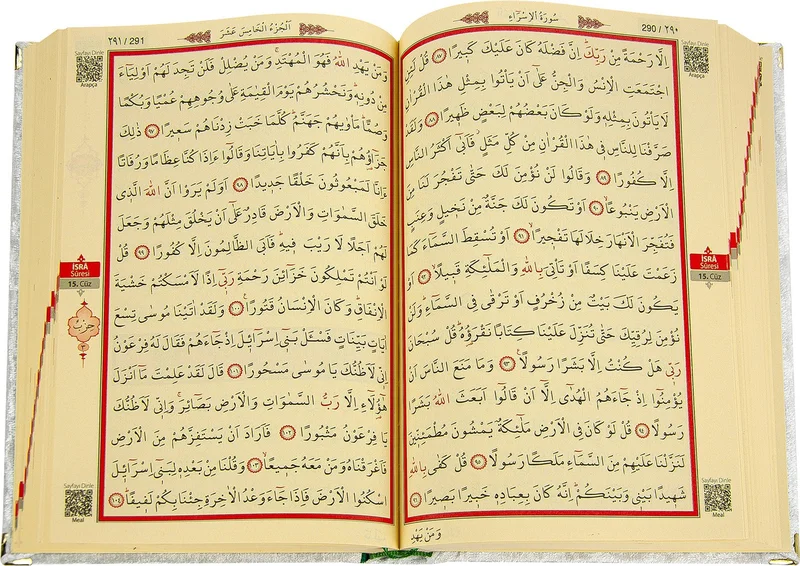 ٢٩٠ / 290
سُورَةُ الْاِسْرَاءِ
Sayfayı Dinle
Arapça
اِلَّا رَحْمَةً مِنْ رَبِّكَۜ اِنَّ فَضْلَهُ كَانَ عَلَيْكَ كَب۪يرًا ﴿٨٧﴾ قُلْ لَئِنِ
اجْتَمَعَتِ الْاِنْسُ وَالْجِنُّ عَلٰٓى اَنْ يَأْتُوا بِمِثْلِ هٰذَا الْقُرْاٰنِ
لَا يَأْتُونَ بِمِثْلِه۪ وَلَوْ كَانَ بَعْضُهُمْ لِبَعْضٍ ظَه۪يرًا ﴿٨٨﴾ وَلَقَدْ
صَرَّفْنَا لِلنَّاسِ ف۪ي هٰذَا الْقُرْاٰنِ مِنْ كُلِّ مَثَلٍ فَاَبٰٓى اَكْثَرُ النَّاسِ
اِلَّا كُفُورًا ﴿٨٩﴾ وَقَالُوا لَنْ نُؤْمِنَ لَكَ حَتّٰى تَفْجُرَ لَنَا مِنَ
الْاَرْضِ يَنْبُوعًاۙ ﴿٩٠﴾ اَوْ تَكُونَ لَكَ جَنَّةٌ مِنْ نَخ۪يلٍ وَعِنَبٍ
فَتُفَجِّرَ الْاَنْهَارَ خِلَالَهَا تَفْج۪يرًاۙ ﴿٩١﴾ اَوْ تُسْقِطَ السَّمَٓاءَ كَمَا
زَعَمْتَ عَلَيْنَا كِسَفًا اَوْ تَأْتِيَ بِاللّٰهِ وَالْمَلٰٓئِكَةِ قَب۪يلًاۙ ﴿٩٢﴾ اَوْ
يَكُونَ لَكَ بَيْتٌ مِنْ زُخْرُفٍ اَوْ تَرْقٰى فِي السَّمَٓاءِۜ وَلَنْ
نُؤْمِنَ لِرُقِيِّكَ حَتّٰى تُنَزِّلَ عَلَيْنَا كِتَابًا نَقْرَؤُ۬هُۜ قُلْ سُبْحَانَ
رَبّ۪ي هَلْ كُنْتُ اِلَّا بَشَرًا رَسُولًا ﴿٩٣﴾ وَمَا مَنَعَ النَّاسَ اَنْ
يُؤْمِنُٓوا اِذْ جَٓاءَهُمُ الْهُدٰٓى اِلَّٓا اَنْ قَالُٓوا اَبَعَثَ اللّٰهُ بَشَرًا
رَسُولًا ﴿٩٤﴾ قُلْ لَوْ كَانَ فِي الْاَرْضِ مَلٰٓئِكَةٌ يَمْشُونَ مُطْمَئِنّ۪ينَ
لَنَزَّلْنَا عَلَيْهِمْ مِنَ السَّمَٓاءِ مَلَكًا رَسُولًا ﴿٩٥﴾ قُلْ كَفٰى بِاللّٰهِ
شَه۪يدًا بَيْن۪ي وَبَيْنَكُمْۜ اِنَّهُ كَانَ بِعِبَادِه۪ خَب۪يرًا بَص۪يرًا ﴿٩٦﴾
وَمَنْ يَهْدِ
İSRÂ
Sûresi
15. Cüz
Sayfayı Dinle
Meal
اَلْجُزْءُ الْخَامِسَ عَشَرَ
٢٩١ / 291
Sayfayı Dinle
Arapça
وَمَنْ يَهْدِ اللّٰهُ فَهُوَ الْمُهْتَدِۚ وَمَنْ يُضْلِلْ فَلَنْ تَجِدَ لَهُمْ اَوْلِيَٓاءَ
مِنْ دُونِه۪ۜ وَنَحْشُرُهُمْ يَوْمَ الْقِيٰمَةِ عَلٰى وُجُوهِهِمْ عُمْيًا وَبُكْمًا
وَصُمًّاۜ مَأْوٰيهُمْ جَهَنَّمُۜ كُلَّمَا خَبَتْ زِدْنَاهُمْ سَع۪يرًا ﴿٩٧﴾ ذٰلِكَ
جَزَٓاؤُ۬هُمْ بِاَنَّهُمْ كَفَرُوا بِاٰيَاتِنَا وَقَالُٓوا ءَاِذَا كُنَّا عِظَامًا وَرُفَاتًا
ءَاِنَّا لَمَبْعُوثُونَ خَلْقًا جَد۪يدًا ﴿٩٨﴾ اَوَلَمْ يَرَوْا اَنَّ اللّٰهَ الَّذ۪ي
خَلَقَ السَّمٰوَاتِ وَالْاَرْضَ قَادِرٌ عَلٰٓى اَنْ يَخْلُقَ مِثْلَهُمْ وَجَعَلَ
لَهُمْ اَجَلًا لَا رَيْبَ ف۪يهِۜ فَاَبَى الظَّالِمُونَ اِلَّا كُفُورًا ﴿٩٩﴾ قُلْ
لَوْ اَنْتُمْ تَمْلِكُونَ خَزَٓائِنَ رَحْمَةِ رَبّ۪ٓي اِذًا لَاَمْسَكْتُمْ خَشْيَةَ
الْاِنْفَاقِۜ وَكَانَ الْاِنْسَانُ قَتُورًا ﴿١٠٠﴾ وَلَقَدْ اٰتَيْنَا مُوسٰى تِسْعَ
اٰيَاتٍ بَيِّنَاتٍ فَسْـَٔلْ بَن۪ٓي اِسْرَٓائ۪لَ اِذْ جَٓاءَهُمْ فَقَالَ لَهُ فِرْعَوْنُ
اِنّ۪ي لَاَظُنُّكَ يَا مُوسٰى مَسْحُورًا ﴿١٠١﴾ قَالَ لَقَدْ عَلِمْتَ مَٓا اَنْزَلَ
هٰٓؤُ۬لَٓاءِ اِلَّا رَبُّ السَّمٰوَاتِ وَالْاَرْضِ بَصَٓائِرَۚ وَاِنّ۪ي لَاَظُنُّكَ
يَا فِرْعَوْنُ مَثْبُورًا ﴿١٠٢﴾ فَاَرَادَ اَنْ يَسْتَفِزَّهُمْ مِنَ الْاَرْضِ
فَاَغْرَقْنَاهُ وَمَنْ مَعَهُ جَم۪يعًاۙ ﴿١٠٣﴾ وَقُلْنَا مِنْ بَعْدِه۪ لِبَن۪ٓي اِسْرَٓائ۪لَ
اسْكُنُوا الْاَرْضَ فَاِذَا جَٓاءَ وَعْدُ الْاٰخِرَةِ جِئْنَا بِكُمْ لَف۪يفًاۜ ﴿١٠٤﴾
İSRÂ
Sûresi
15. Cüz
حزب
٣
Sayfayı Dinle
Meal